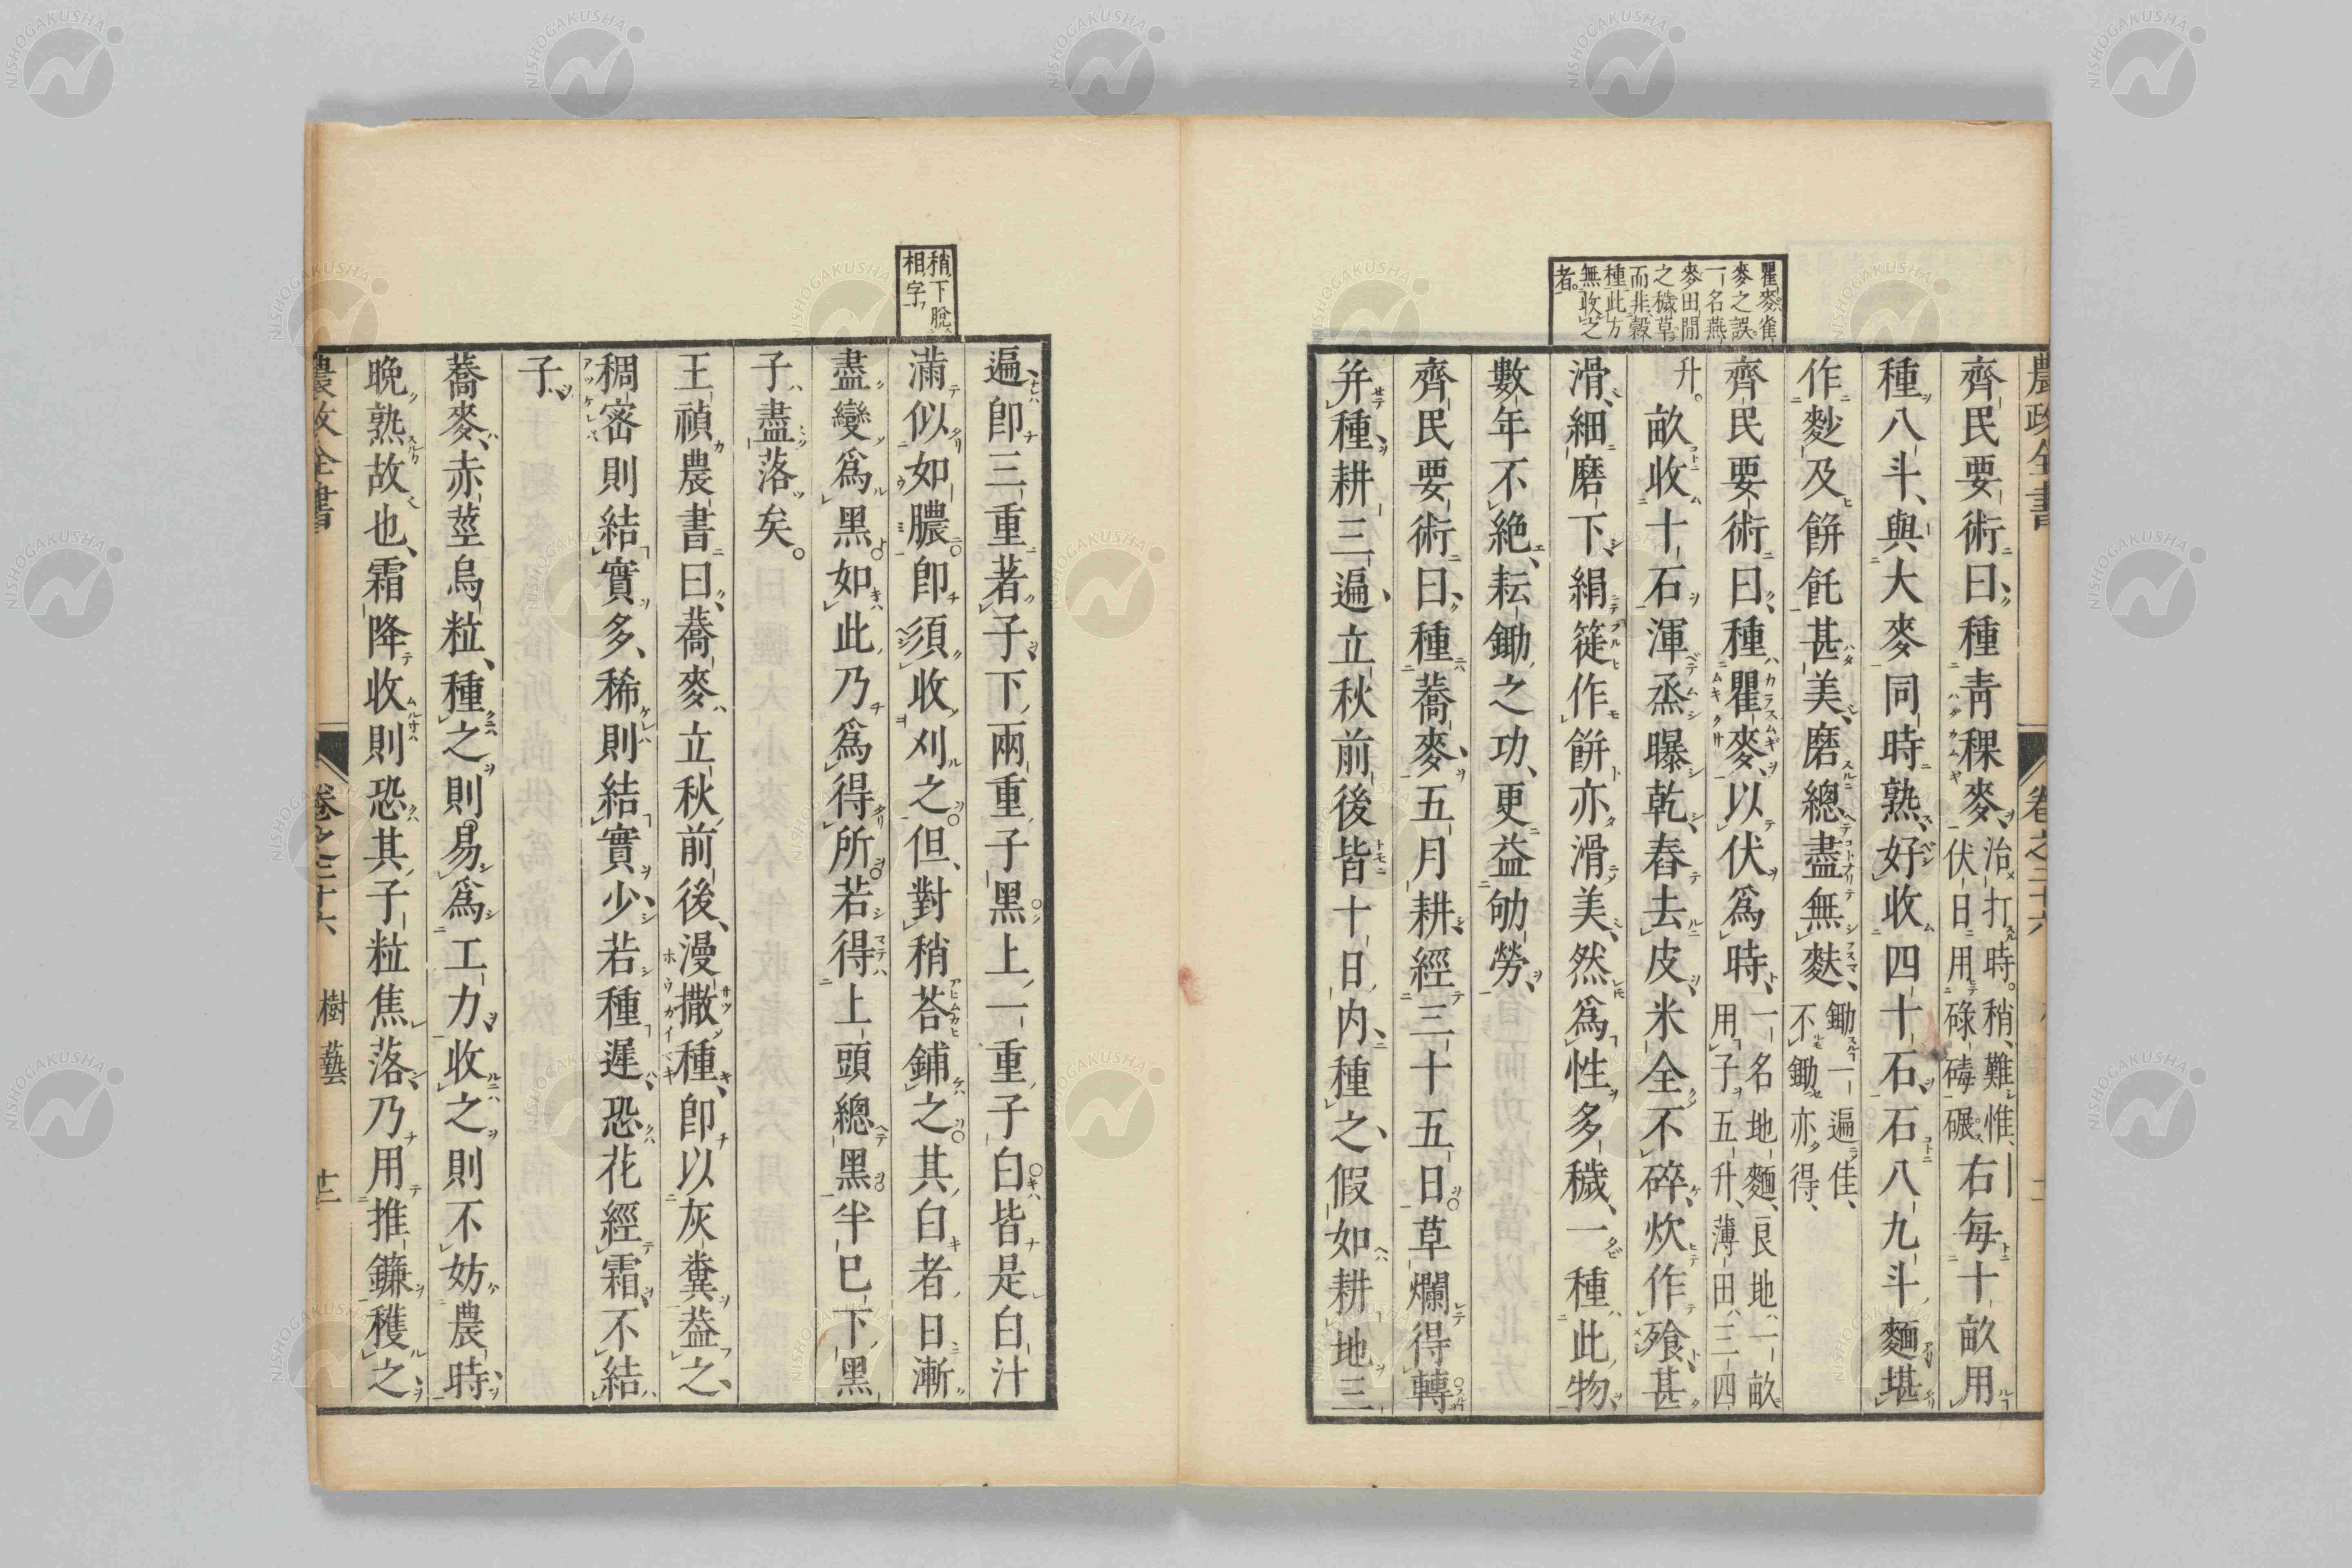 農政全書
卷之二十六
瞿麥雀
麥之誤
一名燕
麥田間
之穢草
而非穀
種此方
無收之
者。
齊民要術曰、種靑稞麥、治打時。稍難惟伏日用碌碡碾右每十畝用
種八斗、與大麥同時熟、好收四十石、石八九斗麵堪
作麨及餠飥甚美、磨總盡無麩、鋤一遍佳、不鋤亦得、
齊民要術曰、種瞿麥、以伏爲時、一名地麵、良地一畝用子五升、薄田三四
升。畝收十石渾蒸曝乾舂去皮、米全不碎、炊作飱、甚
滑、細磨下、絹簁作餠亦滑美、然爲性多穢、一種此物
數年不絶、耘鋤之功、更益劬勞、
齊民要術曰、種蕎麥、五月耕、經三十五日草爛得轉
幷種、耕三遍、立秋前後皆十日内、種之、假如耕地三
稍下脫
相字
遍、卽三重著子、下兩重子黑上一重子白皆是白汁
滿似如膿卽須收刈之、但對稍荅鋪之其白者日漸
盡變爲黑如此乃爲得所若得上頭總黑半已下黑
子盡落矣。
王禎農書曰、蕎麥立秋前後、漫撒種、卽以灰糞葢之、
稠密則結實多、稀則結實少、若種遲恐花經霜不結
子、
蕎麥、赤莖烏粒、種之則易爲工力收之則不妨農時、
晚熟故也、霜降收則恐其子粒焦落、乃用推鐮穫之、
農政全書
卷之二十六
樹藝
十二